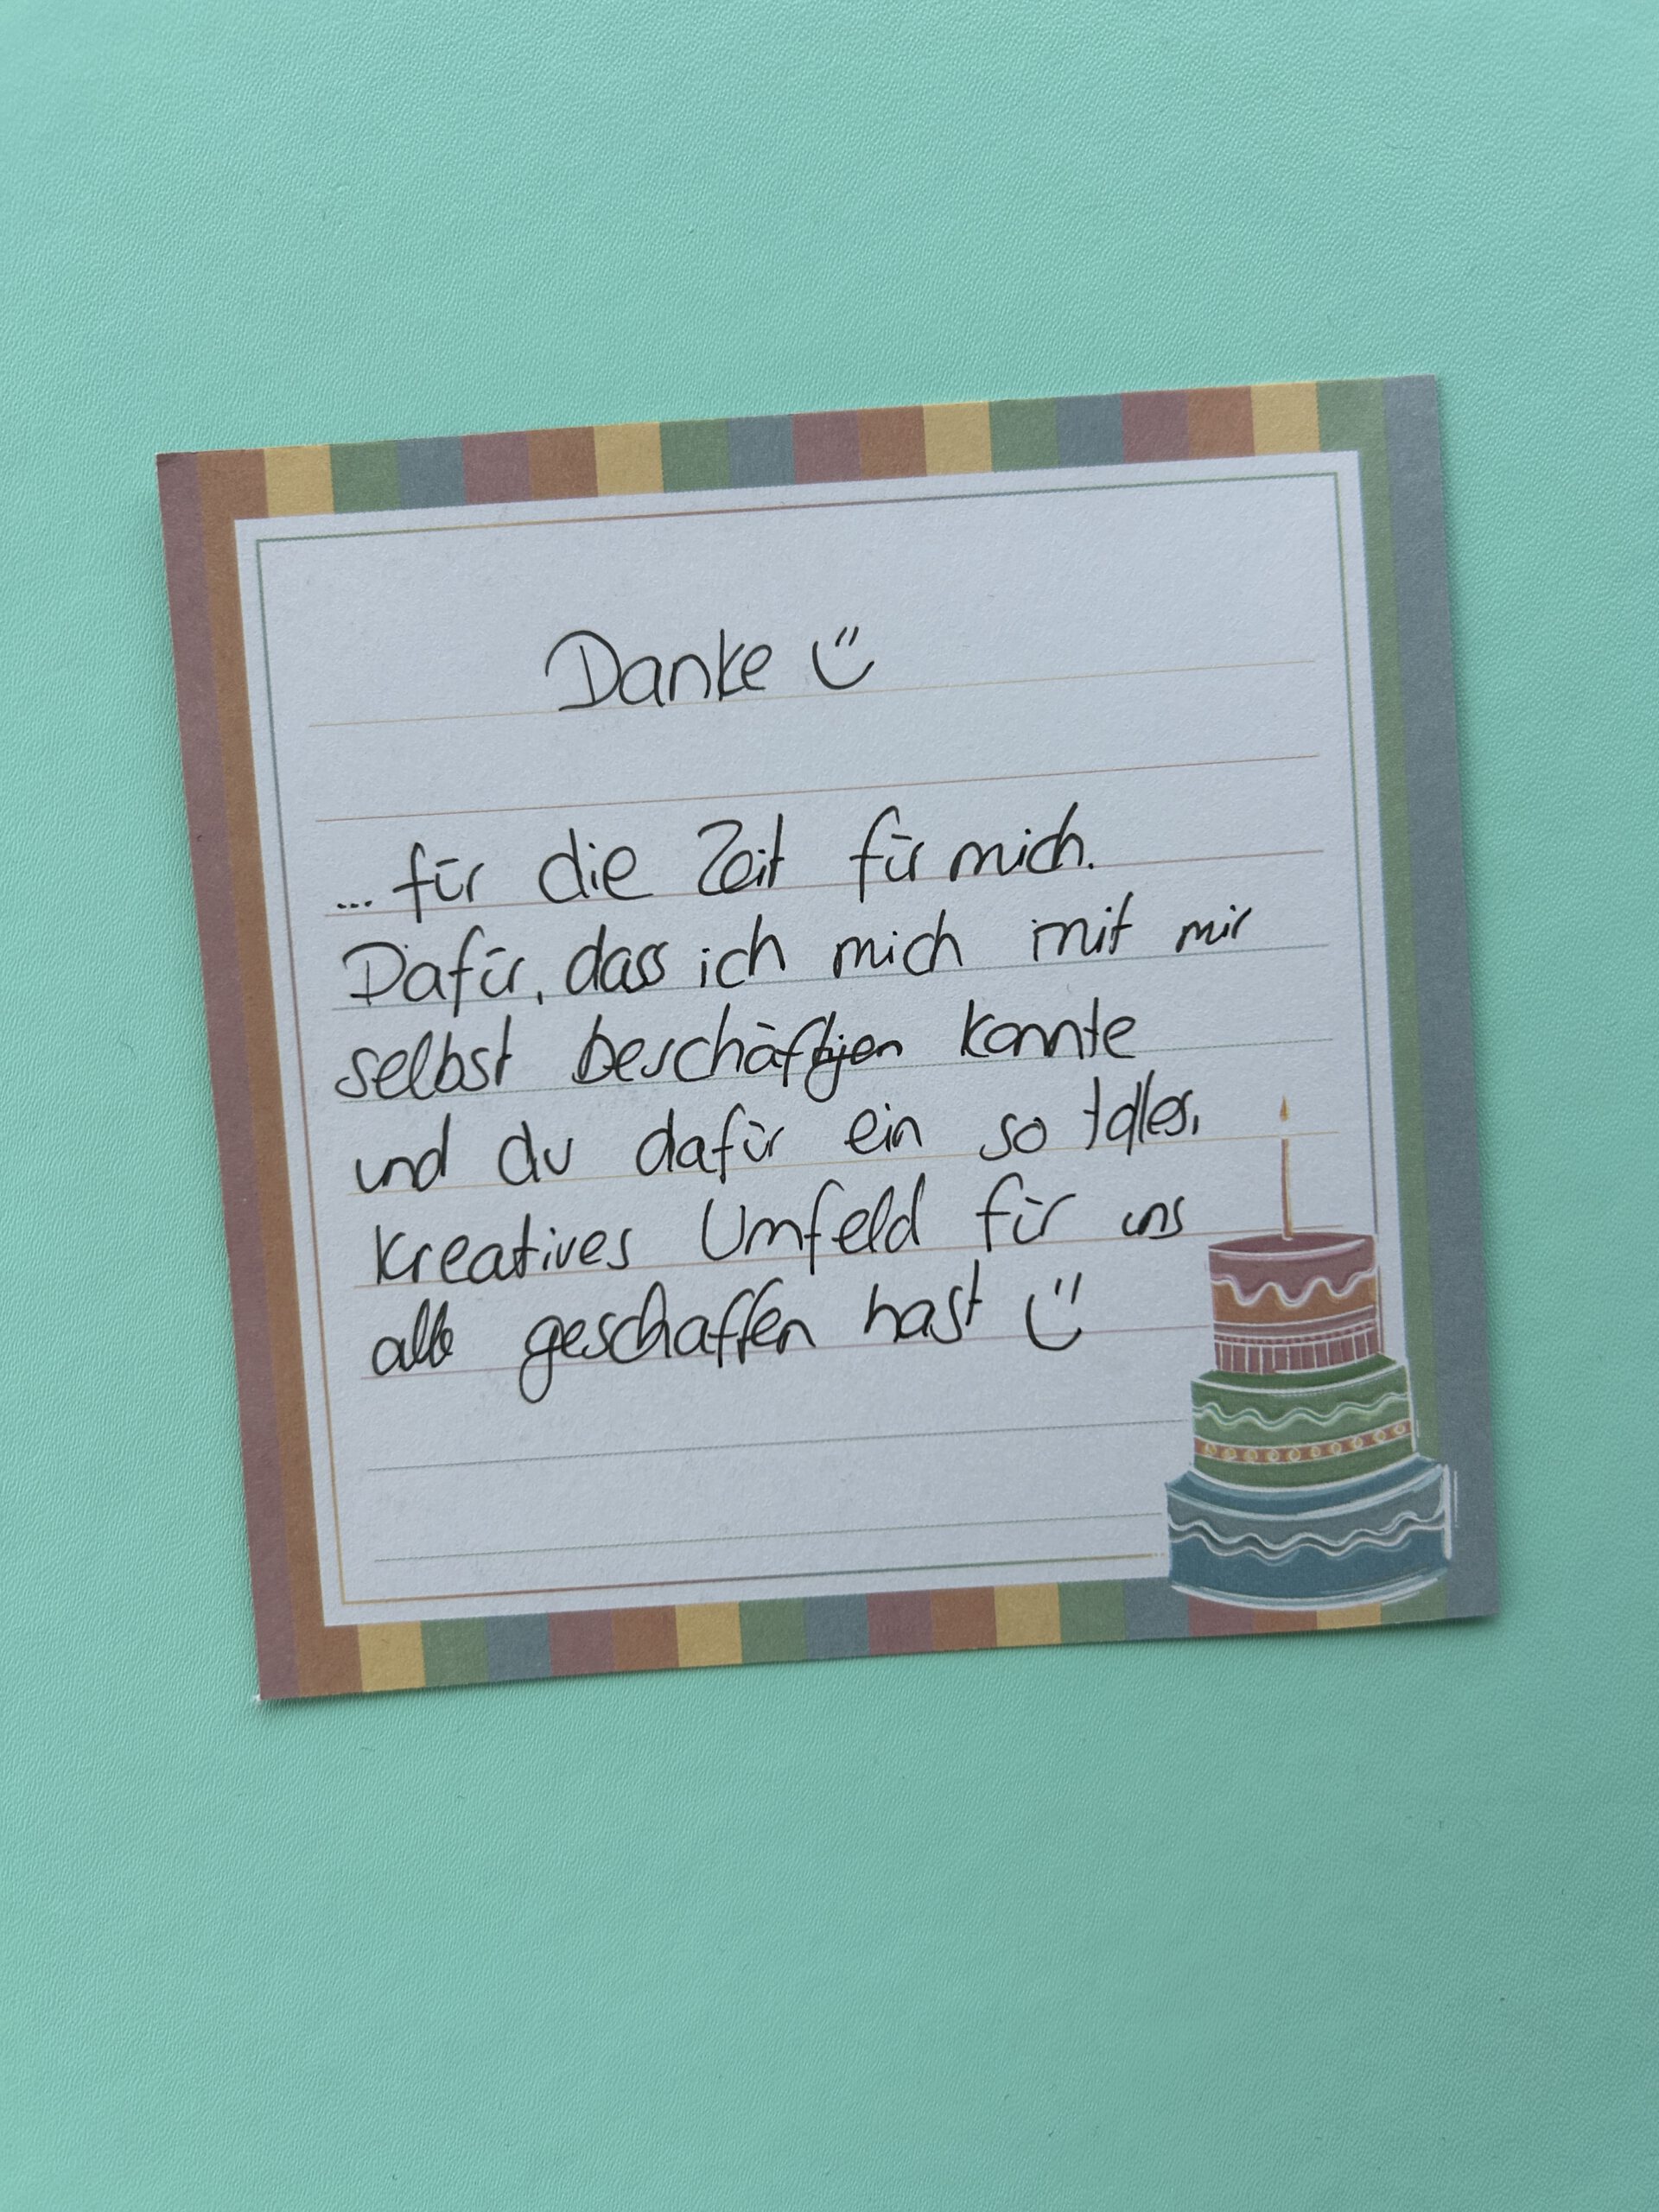 Danke Ü
... für die Zeit für mich.
Dafür, dass ich mich mit mir
selbst beschäftigen konnte
und du dafür ein so tolles,
kreatives Umfeld für uns
alle geschaffen hast Ü